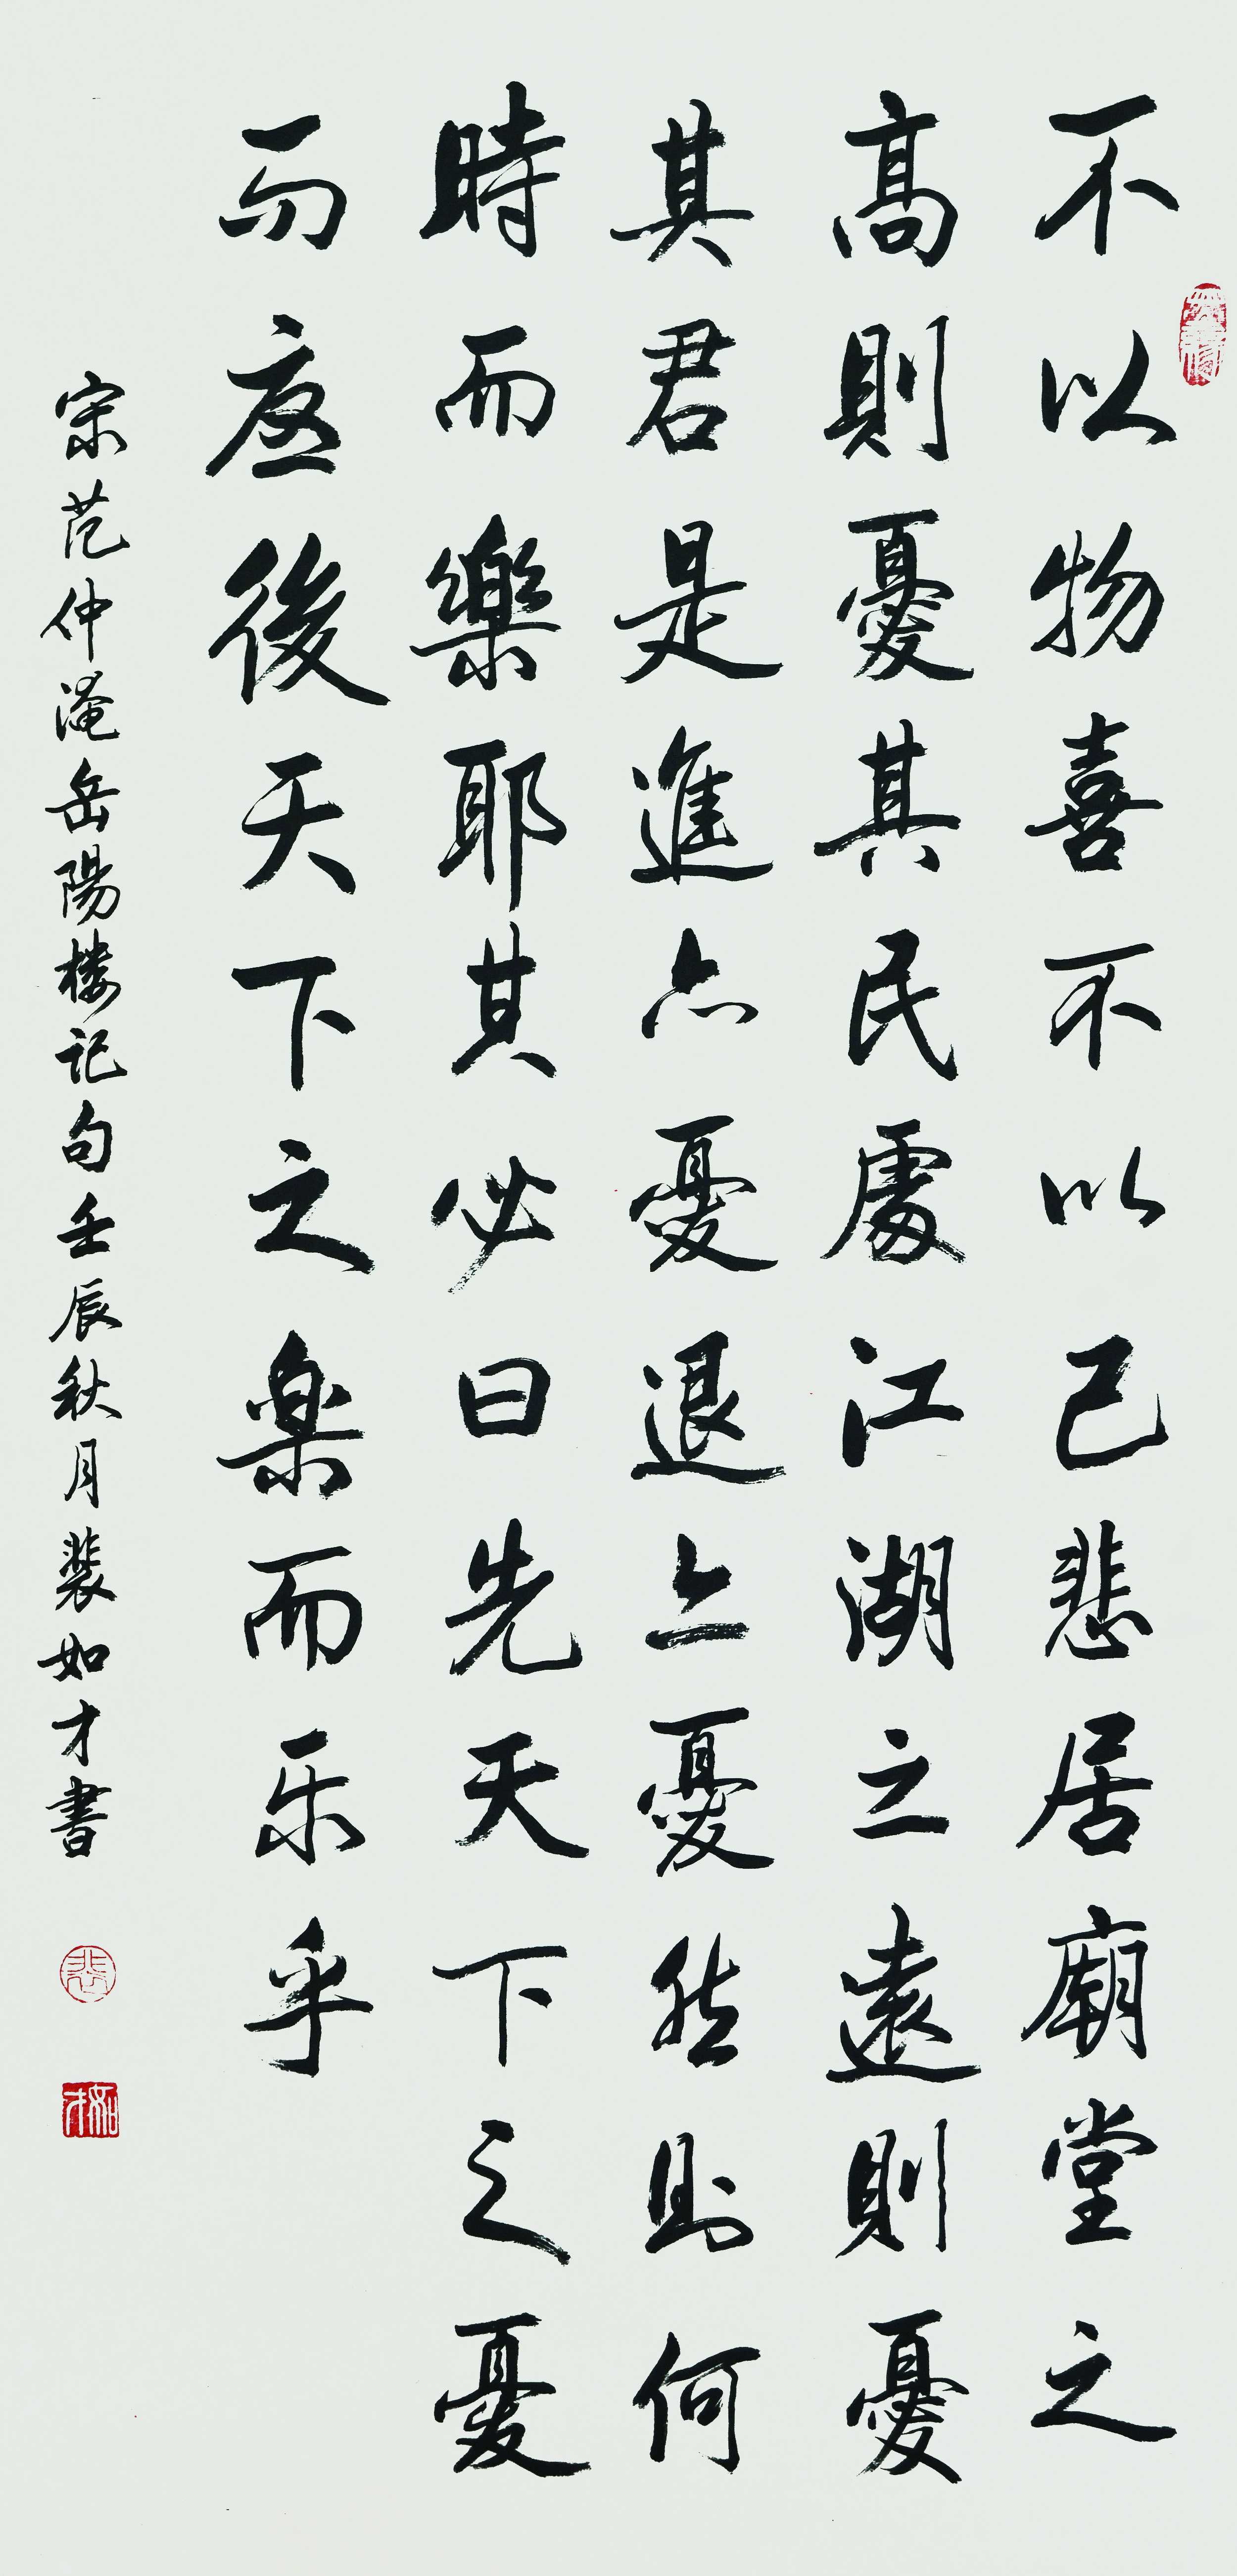 不以物喜不以己悲居廟堂之
高則憂其民處江湖之遠則憂
其君是進亦憂退亦憂然則何
時而樂耶其必曰先天下之憂
而憂後天下之楽而乐乎
宋范仲淹岳陽楼記句壬辰秋月裴如才書
裴
如才